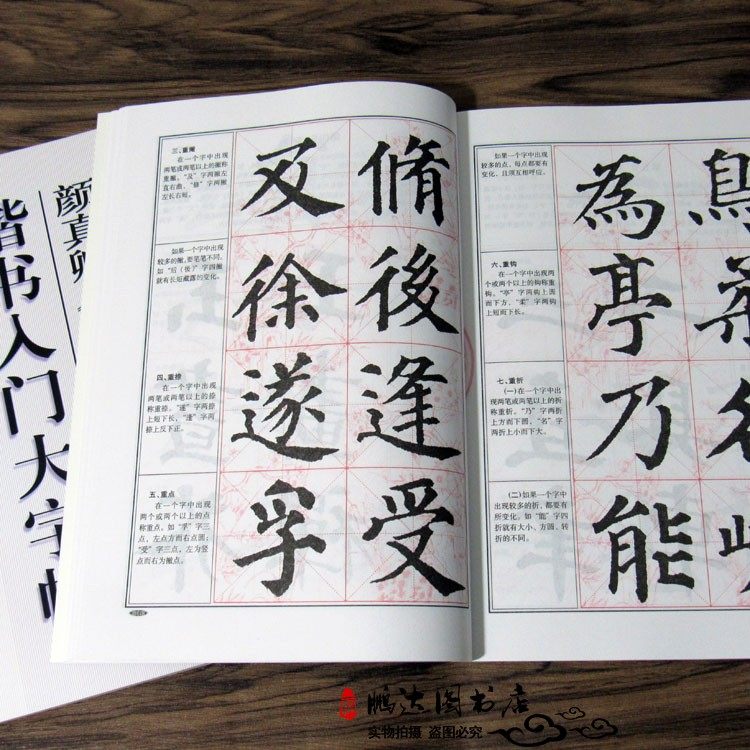 颜真卿
楷书入门大字帖
三、重撇
在一个字中出现
两笔或两笔以上的撇称
重撇。“及”字两撇左
直右曲，“修”字两撇
左长右短。
及 脩
如果一个字中出现
较多的撇，要笔笔不同，
如“后（後）”字四撇
就有长短藏露的变化。
徐 後
四、重捺
在一个字中出现
两笔或两笔以上的捺
称重捺。“遂”字两捺
上短下长，“逢”字两
捺上反下正。
遂 逢
五、重点
在一个字中出现
两个或两个以上的点
称重点。如“孚”字三
点，左点方而右点圆；
“受”字三点，左为竖
点而右为撇点。
孚 受
如果一个字中出现
较多的点，每点都要有
变化，且须互相呼应。
為
六、重钩
在一个字中出现两
个或两个以上的钩称重
钩。“亭”字两钩上圆
而下方，“柔”字两钩
上短而下长。
亭 柔
七、重折
（一）在一个字中出
现两笔或两笔以上的折
称重折。“乃”字两折
上方而下圆，“名”字
两折上小而下大。
乃 名
（二）如果一个字中
出现较多的折，都要有
所变化。如“能”字四
折就有大小、方圆、转
折的不同。
能
鹏达图书店
实物拍摄 盗图必究